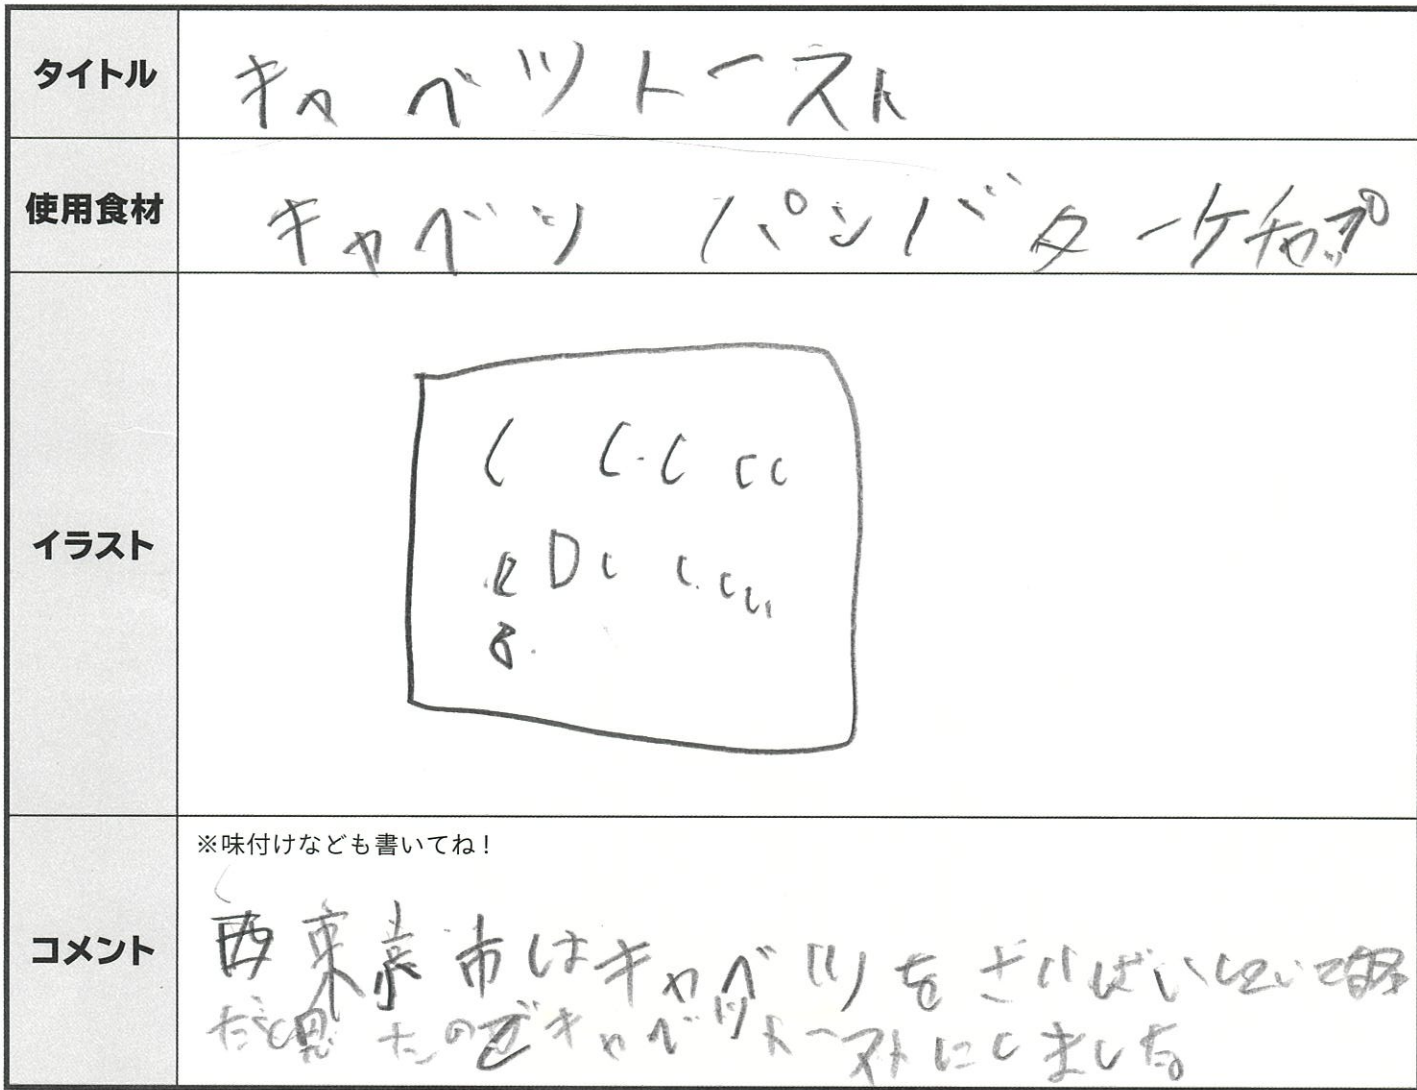 タイトル
キャベツトースト
使用食材
キャベツ パンバターケチャップ
イラスト
コメント
※味付けなども書いてね!
西東京市はキャベツをさいばいしていて
だと思ったのでキャベツトーストにしました